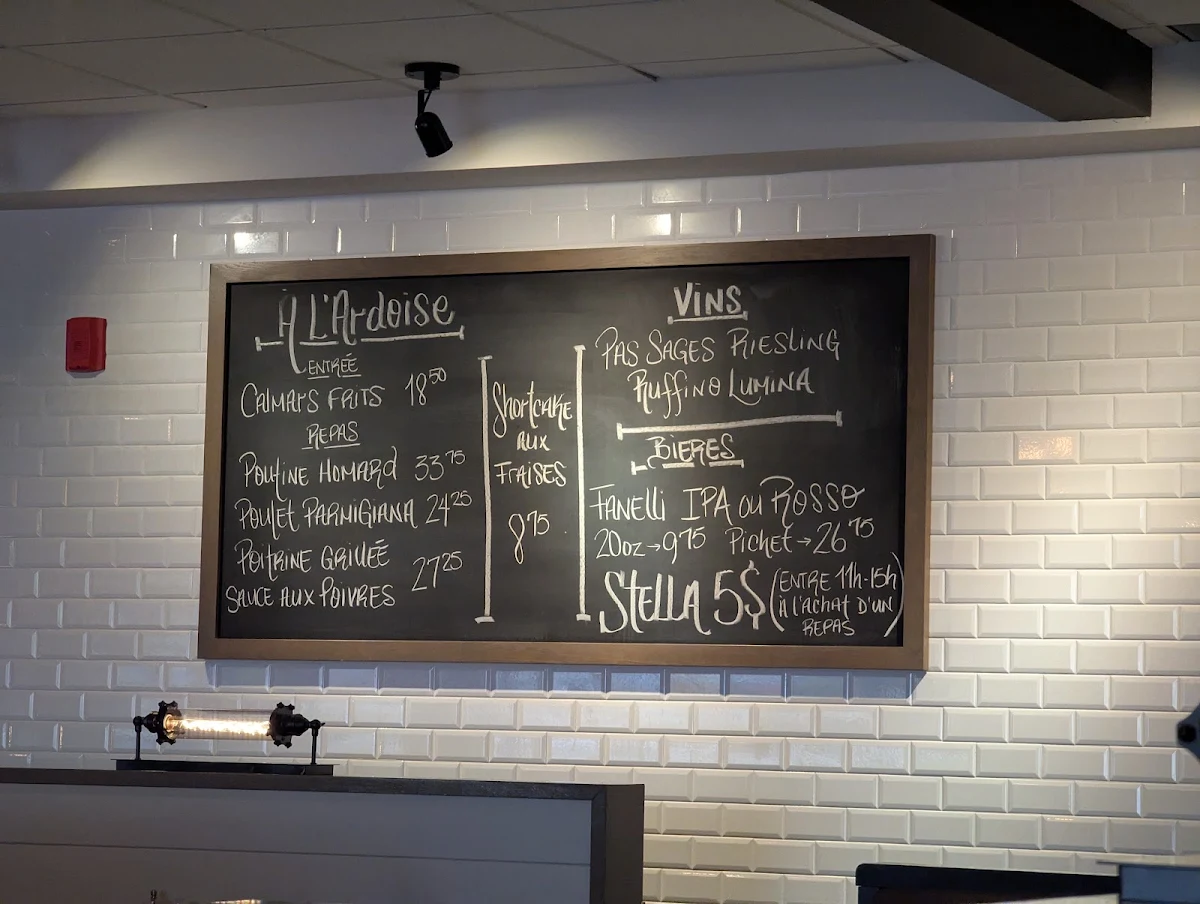 À L'Ardoise
ENTRÉE
CALMARS FRITS 18⁵⁰
REPAS
POUTINE HOMARD 33⁷⁵
POULET PARMIGIANA 24²⁵
POITRINE GRILLÉE
SAUCE AUX POIVRES 27²⁵
Shortcake
AUX
FRAISES
8⁷⁵
VINS
PAS SAGES RIESLING
Ruffino LUMINA
BIERES
FANELLI IPA ou ROSSO
20oz→9⁷⁵ Pichet→26⁷⁵
STELLA 5$ (ENTRE 11h-15h
À l'achat D'UN
REPAS)